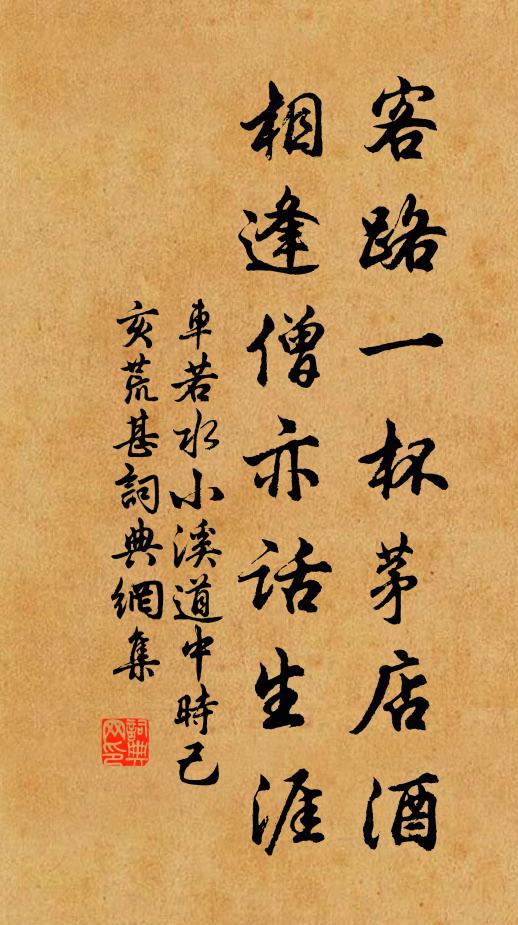 客路一杯茅店酒
相逢僧亦話生涯
車若水小溪道中時己
亥荒甚詞典網集
詞典网印